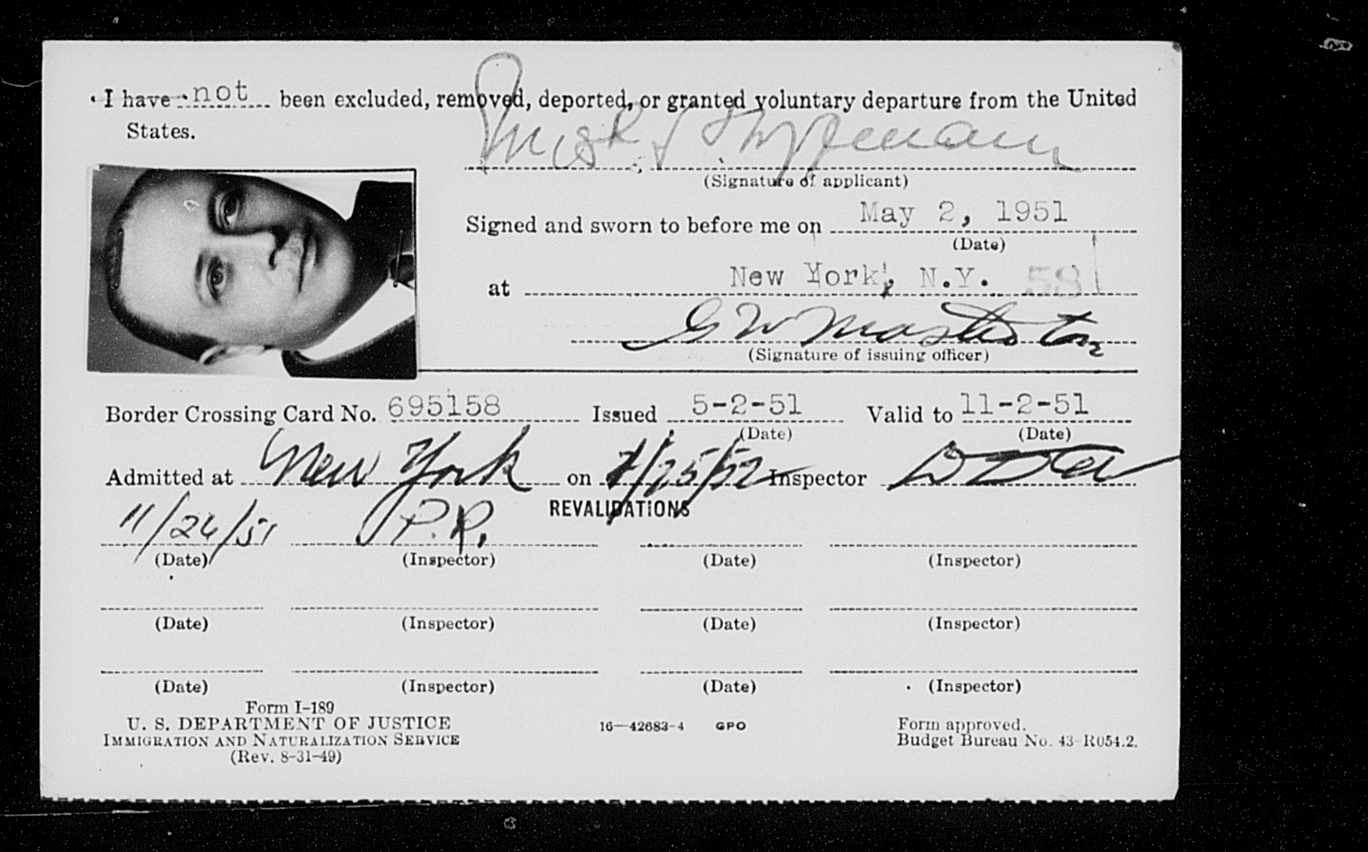 I have not been excluded, removed, deported, or granted voluntary departure from the United
States.
(Signature of applicant)
Signed and sworn to before me on May 2, 1951
(Date)
at New York, N.Y. 58
G W Masterton
(Signature of issuing officer)
Border Crossing Card No. 695158 Issued 5-2-51 Valid to 11-2-51
(Date) (Date)
Admitted at New York on 1/25/52 Inspector
REVALIDATIONS
11/26/51 P.R.
(Date) (Inspector) (Date) (Inspector)
(Date) (Inspector) (Date) (Inspector)
(Date) (Inspector) (Date) (Inspector)
Form I-189
U. S. DEPARTMENT OF JUSTICE 16—42683-4 GPO Form approved.
IMMIGRATION AND NATURALIZATION SERVICE Budget Bureau No. 43-R054.2.
(Rev. 8-31-49)